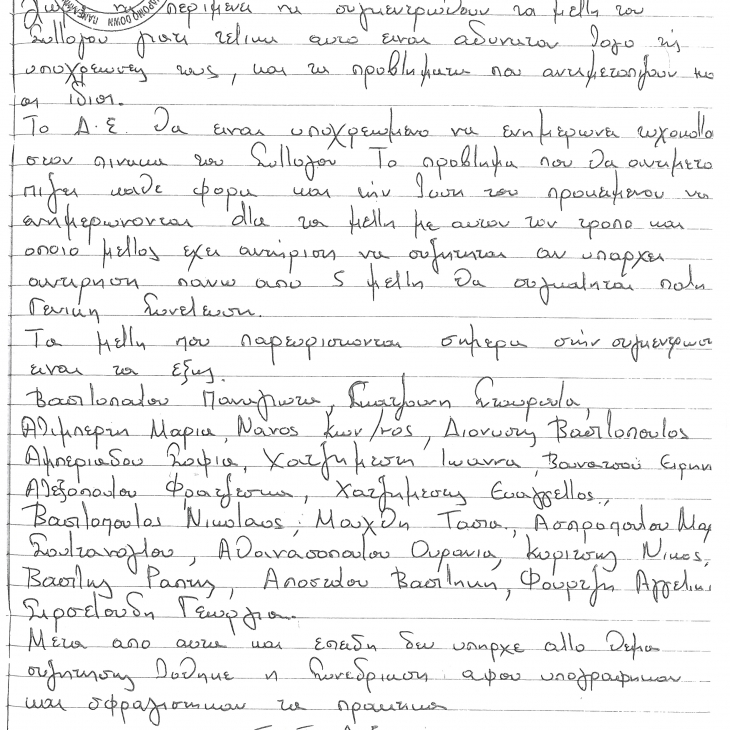 να περιμένει να συγκεντρώνουν τα μελλη του
Συλλογου γιατι τελικα αυτο ειναι αδυνατον λογο τις
υποχρεωσεις τους, και τα προβληματα που αντιμετοπιζουν κε
οι ιδιοι.
Το Δ.Σ. θα ειναι υποχρεωμενο να ενημερωνει τυχοκολλα
στον πινακα του Συλλογου Το προβλημα που θα αντιμετο
πιζει καθε φορα και την λυση του προκειμενου να
ενημερωνονται ολα τα μελλη με αυτον τον τροπο και
οποιο μελλος εχει αντιρηση να συζητηται αν υπαρχει
αντιρηση πανω απο 5 μελλη θα συγκαλητai παλη
Γενικη Συνελευση.
Τα μελλη που παρευρισκονται σημερα στην συγκεντρωση
ειναι τα εξης.
Βασιλοπουλου Παναγιωτα, Σταυρουλα,
Αλιμπερτη Μαρια, Νανος Κων/νος, Διονυσης Βασιλοπουλος
Αμπεριαδου Σοφια, Χατζημιση Ιωαννα, Ειρηνη
Αλεξοπουλου Φρατζεσκα, Χατζημισης Ευαγγελλος,
Βασιλοπουλος Νικολαος, Μαυχδη Τασια, Ασπροπουλου Μαρ
Σουλτανογλου, Αθανασοπουλου Ουρανια, Κυριτσης Νικος,
Βασιλης Ραπτης, Αποστολου Βασιλικη, Φουρτζη Αγγελικ
Σιρσελουδη Γεωργια.
Μετα απο αυτα και επειδη δεν υπηρχε αλλο θεμα
συζητησης λυθηκε η Συνεδριαση αφου υπογραφηκαν
και σφραγιστηκαν τα πρακτικα